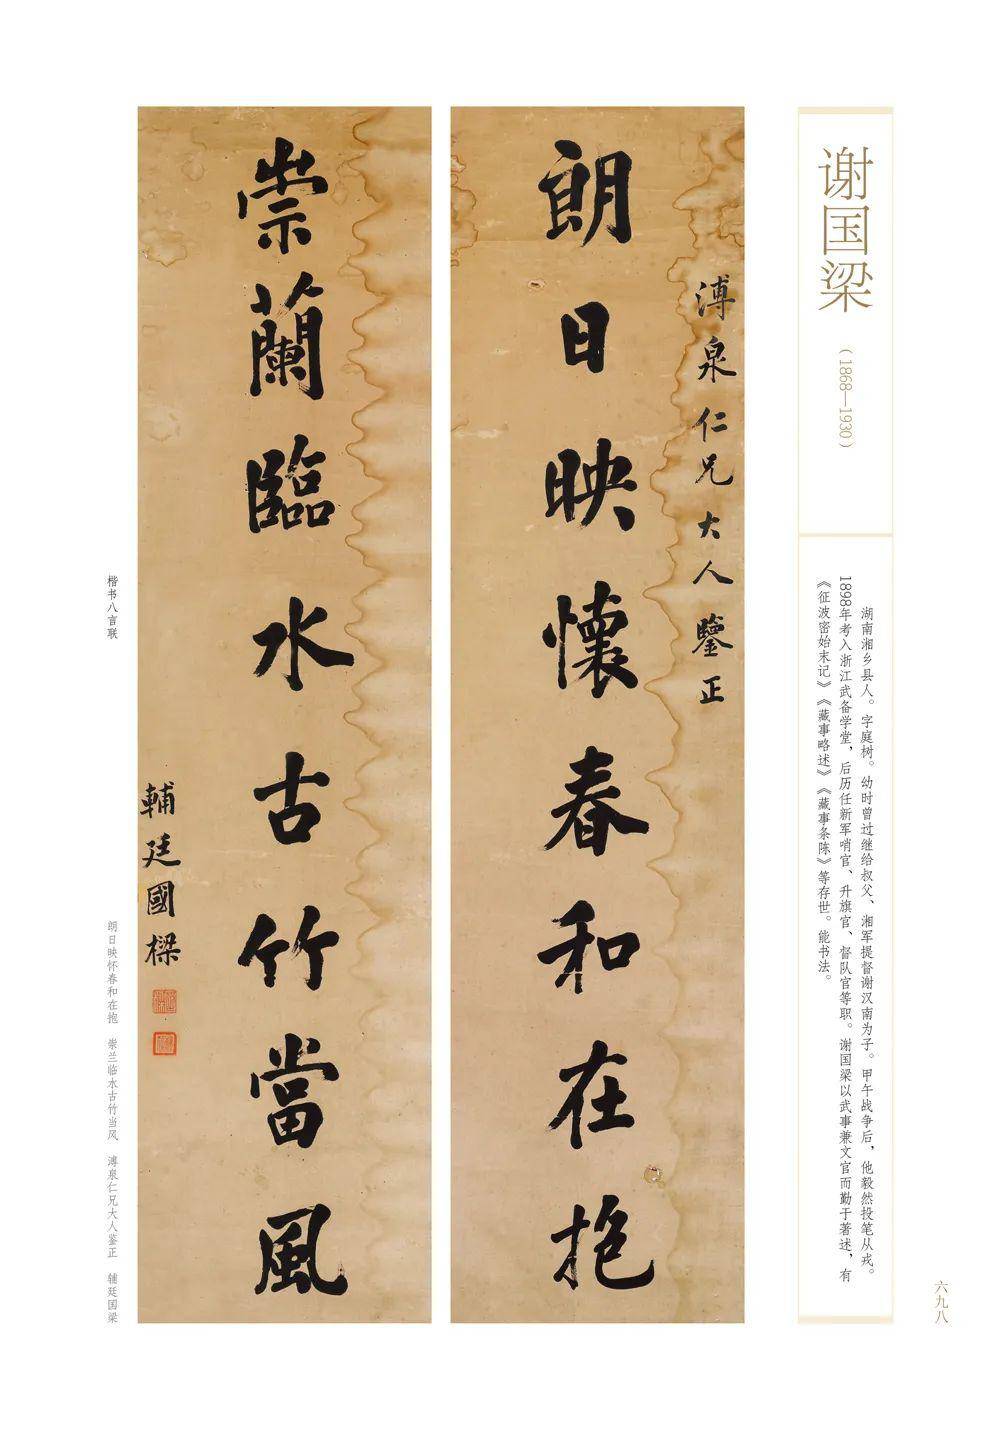 谢国梁
（1868—1930）
湖南湘乡县人。字庭树。幼时曾过继给叔父、湘军提督谢汉南为子。甲午战争后，他毅然投笔从戎。
1898年考入浙江武备学堂，后历任新军哨官、升旗官、督队官等职。谢国梁以武事兼文官而勤于著述，有
《征波密始末记》《藏事略述》《藏事条陈》等存世。能书法。
溥泉仁兄大人鑒正
朗日映懷春和在抱
崇蘭臨水古竹當風
輔廷國樑
楷书八言联
朗日映怀春和在抱　崇兰临水古竹当风　溥泉仁兄大人鉴正　辅廷国梁
六九八